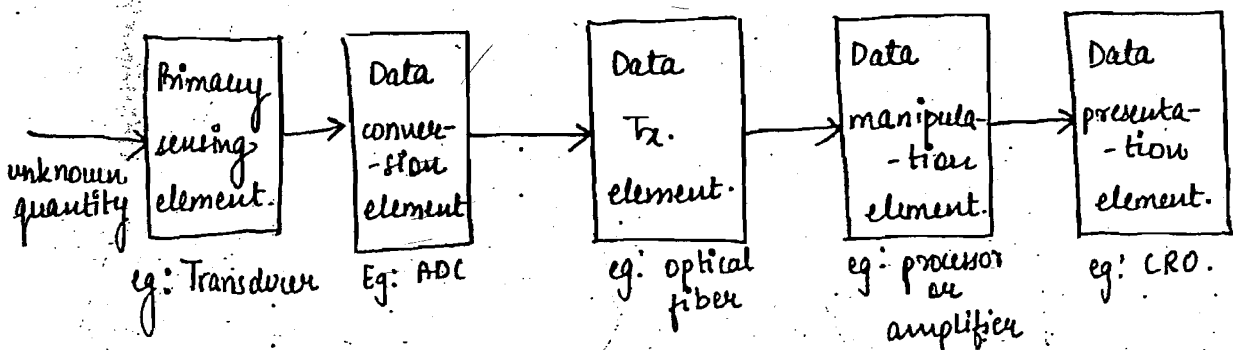 unknown
quantity
Primary
sensing
element.
eg: Transducer
Data
conver-
-sion
element
Eg: ADC
Data
Tx.
element.
eg: optical
fiber
Data
manipula-
-tion
element.
eg: processor
or
amplifier
Data
presenta-
-tion
element.
eg: CRO.